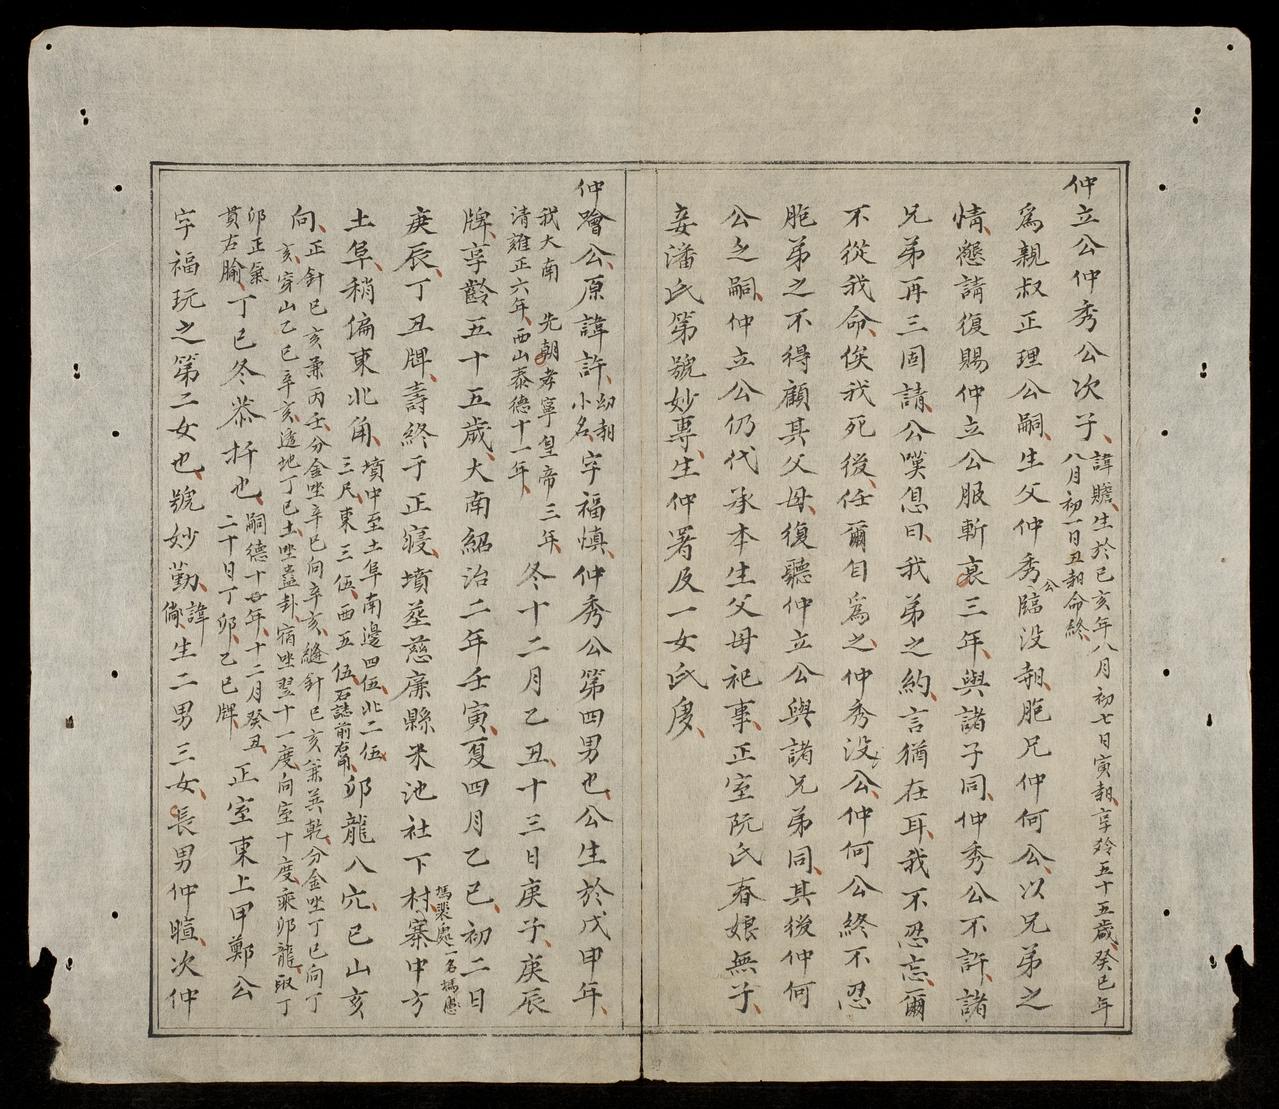 仲立公仲秀公次子諱贍生於己亥年八月初七日寅㝵享齡五十五歲癸巳年八月初一日丑㝵命終
爲親叔正理公嗣生父仲秀公臨没㝵胞兄仲何公以兄弟之
情懇請復賜仲立公服斬衰三年與諸子同仲秀公不許諸
兄弟再三固請公嘆息曰我弟之約言猶在耳我不忍忘爾
不從我命俟我死後任爾自爲之仲秀没公仲何公終不忍
胞弟之不得顧其父母復聽仲立公與諸兄弟同其後仲何
公之嗣仲立公仍代承本生父母祀事正室阮氏春娘無子
妾潘氏第號妙專生仲署及一女氏度
仲噲公原諱許幼㝵小名字福慎仲秀公第四男也公生於戊申年
我大南 先朝孝寧皇帝三年清雍正六年西山泰德十一年冬十二月乙丑十三日庚子庚辰
牌享齡五十五歲大南紹治二年壬寅夏四月乙巳初二日
庚辰丁丑牌壽終于正寢墳葬慈廉縣米池社下村寨中方
土阜稍偏東北角墳中至土阜南邊四伍北二伍三尺東三伍西五伍石誌前右角卯龍八穴巳山亥
向正針巳亥兼丙壬分金坐辛巳向辛亥縫針巳亥兼巽乾分金坐丁巳向丁亥穿山乙巳辛亥透地丁巳土坐蠱卦宿坐翌十一度向室十度乘卯龍取丁
卯正氣貫右腧丁巳冬恭扦也嗣德十年十二月癸丑二十日丁卯乙巳牌正室東上甲鄭公
字福玩之第二女也號妙勤諱倘生二男三女長男仲暄次仲